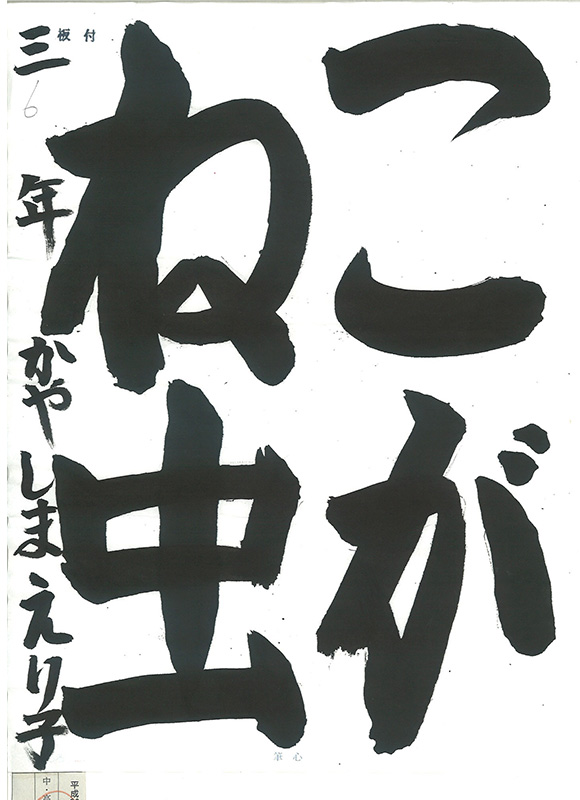 こが
ね虫
三年 かやしまえり子
6
板付
筆心
平成
中・高